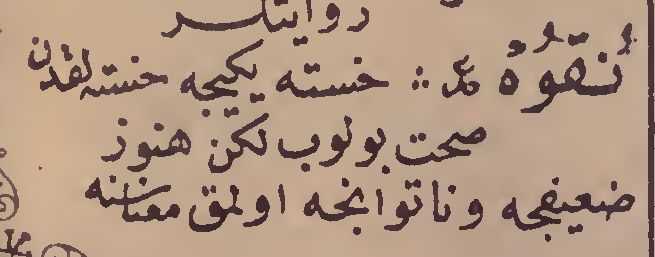 روايتلر
نُقُوهْ عر :: خسته يكيجه خسته لقدن
صحت بولوب لكن هنوز
ضعيفجه و ناتوانجه اولمق معناسنه